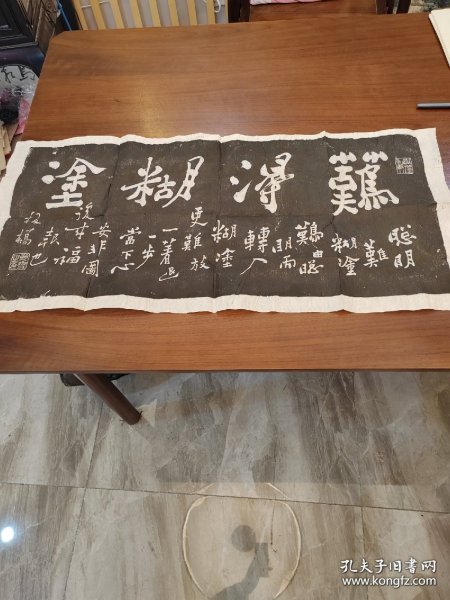 難得糊塗
聰明
難
糊塗
難由聰
明而
轉入
糊塗
更難放
一著退
一步
當下心
安非圖
後來福
報也
板橋
孔夫子旧书网
www.kongfz.com